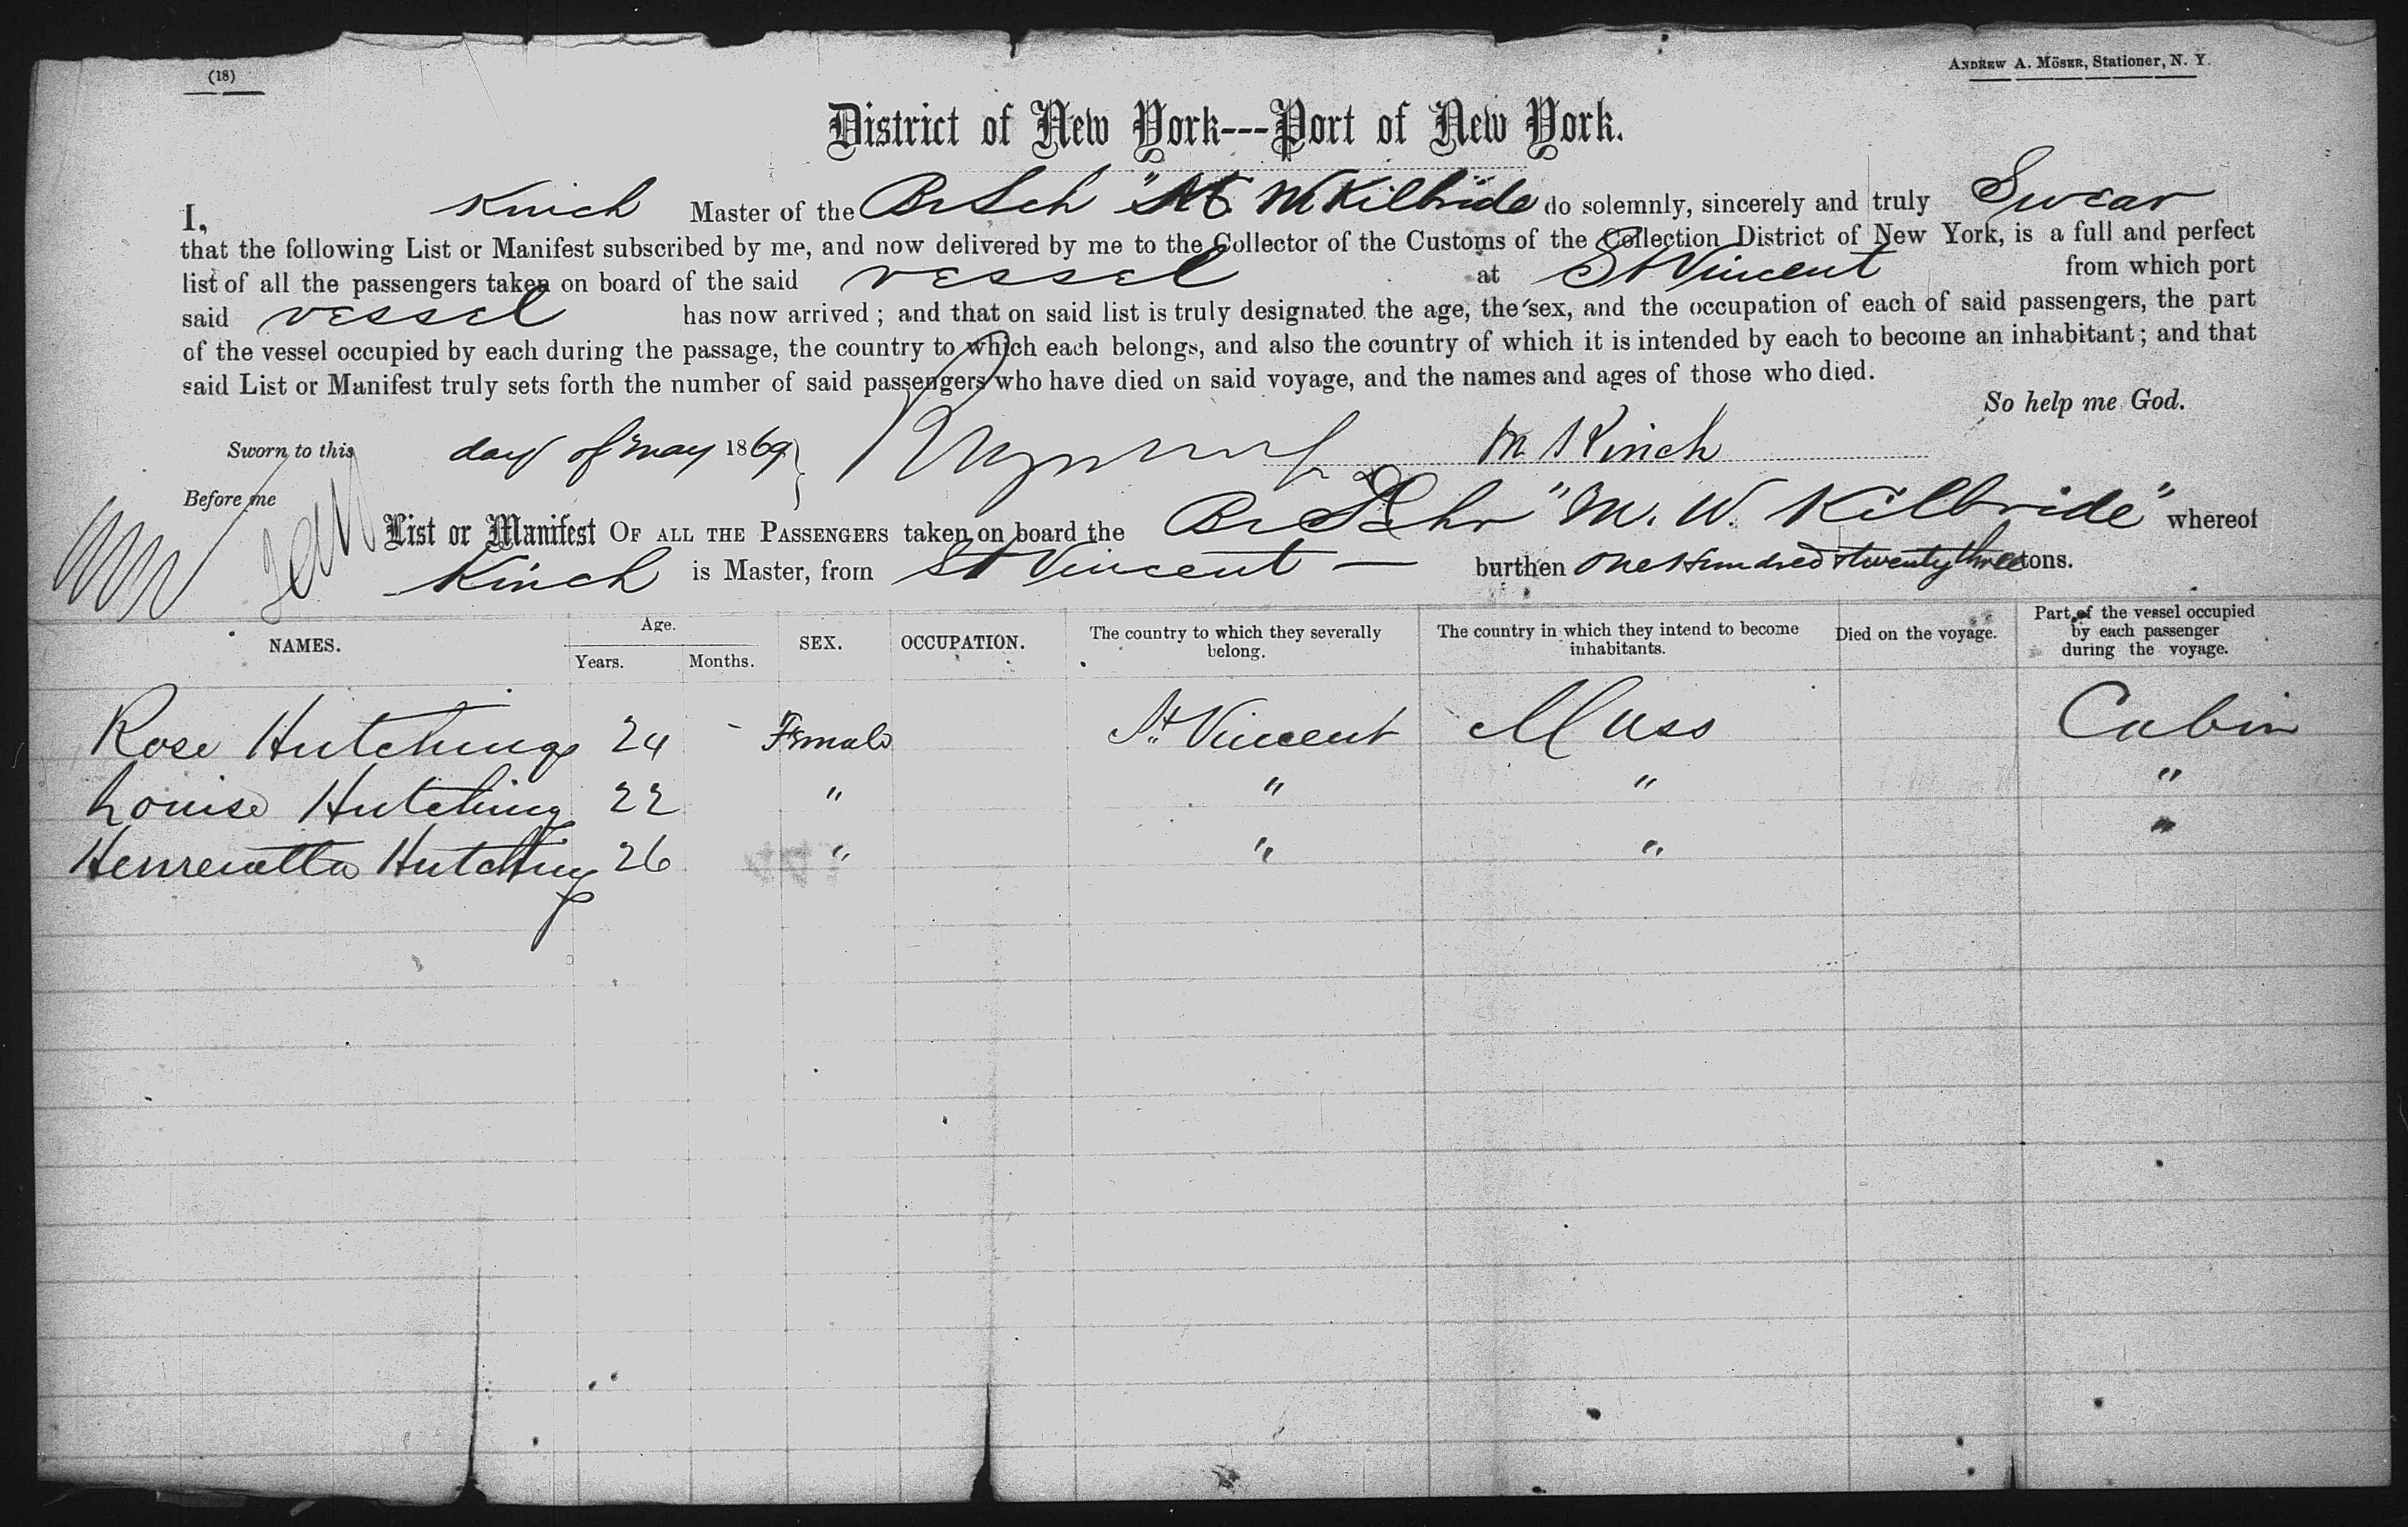 (18)
ANDREW A. MÖSER, Stationer, N. Y.
District of New York---Port of New York.
I, Kinch Master of the Br Sch "M. W Kilbride" do solemnly, sincerely and truly Swear
that the following List or Manifest subscribed by me, and now delivered by me to the Collector of the Customs of the Collection District of New York, is a full and perfect
list of all the passengers taken on board of the said vessel at St Vincent from which port
said vessel has now arrived ; and that on said list is truly designated the age, the sex, and the occupation of each of said passengers, the part
of the vessel occupied by each during the passage, the country to which each belongs, and also the country of which it is intended by each to become an inhabitant ; and that
said List or Manifest truly sets forth the number of said passengers who have died on said voyage, and the names and ages of those who died.
So help me God.
Sworn to this day of may 1869 M Kinch
Before me
List or Manifest OF ALL THE PASSENGERS taken on board the Br Schr "M. W. Kilbride" whereof
Kinch is Master, from St Vincent — burthen One Hundred & twenty three tons.
NAMES. Age. Years. Months. SEX. OCCUPATION. The country to which they severally belong. The country in which they intend to become inhabitants. Died on the voyage. Part of the vessel occupied by each passenger during the voyage.
Rose Hutchings 24 - Female St. Vincent Mass Cabin
Louise Hutchings 22 " " " "
Henreiatta Hutchings 26 " " " "